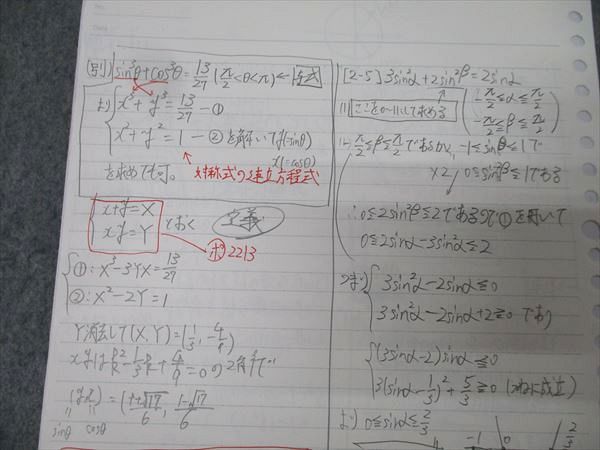 (別) sin³θ+cos³θ=13/27 (π/2<θ<π) ←与式
より x³+y³=13/27 —①
x²+y²=1 —②を解いてy(=sinθ)
x(=cosθ)
を求めても可。
対称式の連立方程式
x+y=X
xy=Y
とおく
定義
ポ2213
①: X³-3YX=13/27
②: X²-2Y=1
Y消去して(X,Y)=(1/3, -4/9)
=0の2解で
(y,x)=(1+√17/6, 1-√17/6)
sinθ cosθ
[2-5] 3sin²α+2sin²β=2sinα
(1) ここを0~1にして求める
-π/2≦α≦π/2
-π/2≦β≦π/2
-π/2≦β≦π/2であるから, -1≦sinβ≦1で
×2 0≦sin²β≦1である
∴0≦2sin²β≦2であるので①を用いて
0≦2sinα-3sin²α≦2
つまり 3sin²α-2sinα≦0
3sin²α-2sinα+2≧0であり
(3sinα-2)sinα≦0
3(sinα-1/3)²+5/3≧0 (つねに成立)
より 0≦sinα≦2/3
-1 0 2/3